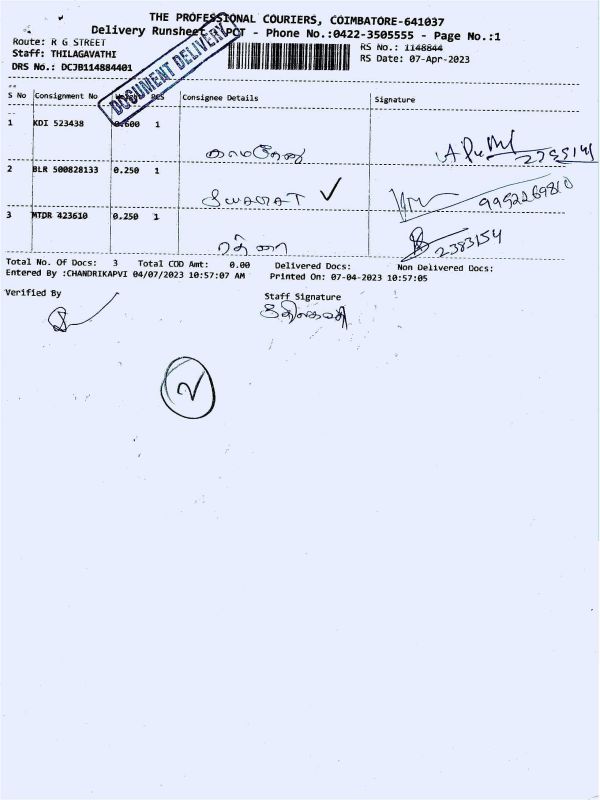 THE PROFESSIONAL COURIERS, COIMBATORE-641037
Delivery Runsheet - Phone No.:0422-3505555 - Page No.:1
DOCUMENT DELIVERY
Route: R G STREET
Staff: THILAGAVATHI
DRS No.: DCJB114884401
RS No.: 1148844
RS Date: 07-Apr-2023
S No Consignment No PCS Consignee Details Signature
1 KDI 523438 0.600 1
காமதேனு
2 BLR 500828133 0.250 1
9952269810
3 MTDR 423610 0.250 1
2383154
Total No. Of Docs: 3 Total COD Amt: 0.00 Delivered Docs: Non Delivered Docs:
Entered By :CHANDRIKAPVI 04/07/2023 10:57:07 AM Printed On: 07-04-2023 10:57:05
Verified By
Staff Signature